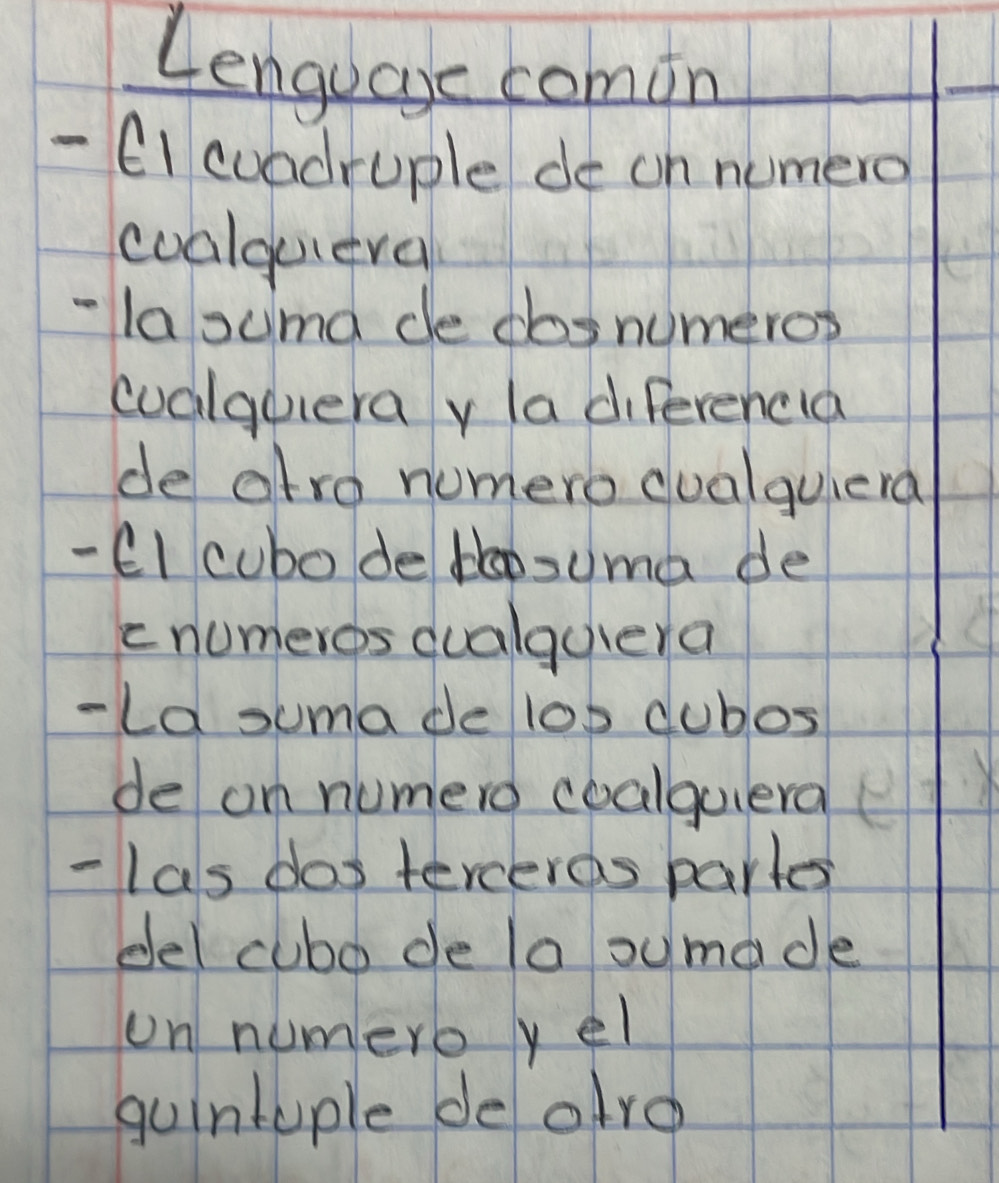 Lenguaje común
- El cuadruple de un numero
cualquiera
- la suma de dos numeros
cualquiera y la diferencia
de otro numero cualquiera
- El cubo de suma de
numeros cualquiera
- La suma de los cubos
de un numero cualquiera
- las dos terceras partes
del cubo de la suma de
un numero y el
quintuple de otro